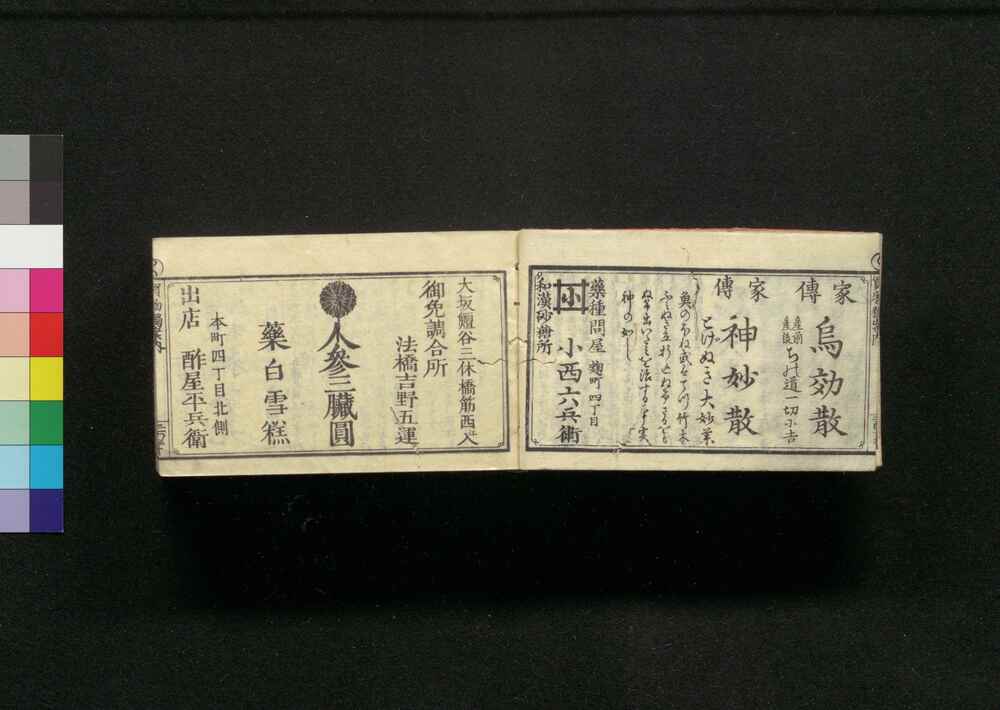 家傳
烏効散
産前
産後
ちの道一切に吉
家傳
神妙散
とげぬき大妙薬
魚のほね或は
竹木
神の如し
藥種問屋 麹町四丁目
小西六兵衛
和漢砂糖所
大坂
谷三休橋筋西入
御免調合所
法橋吉野五運
人參三臓圓
藥白雪糕
本町四丁目北側
出店 酢屋平兵衛